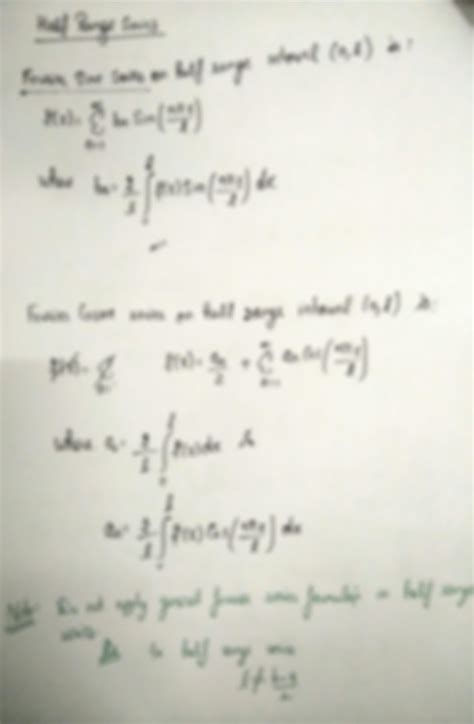 Half Range Series
Fourier Sine Series on half range interval (0, l) is:
f(x) = ∑ bn Sin(nπx/l)
where bn = 2/l ∫ f(x) Sin(nπx/l) dx
Fourier Cosine series on half range interval (0, l) is:
f(x) = ∑ f(x) = a0/2 + ∑ an Cos(nπx/l)
where a0 = 2/l ∫ f(x) dx &
an = 2/l ∫ f(x) Cos(nπx/l) dx
Note: Do not apply general fourier series formula in half range
series
In half range series
l ≠